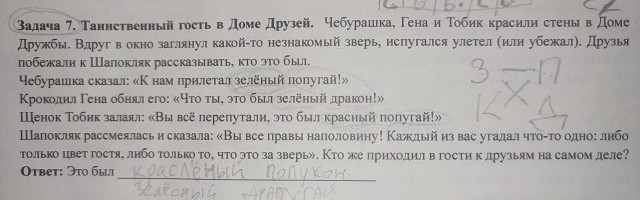 Задача 7. Таинственный гость в Доме Друзей. Чебурашка, Гена и Тобик красили стены в Доме
Дружбы. Вдруг в окно заглянул какой-то незнакомый зверь, испугался улетел (или убежал). Друзья
побежали к Шапокляк рассказывать, кто это был.
Чебурашка сказал: «К нам прилетал зелёный попугай!»
З — П
Крокодил Гена обнял его: «Что ты, это был зелёный дракон!»
К Д
Щенок Тобик залаял: «Вы всё перепутали, это был красный попугай!»
Шапокляк рассмеялась и сказала: «Вы все правы наполовину! Каждый из вас угадал что-то одно: либо
только цвет гостя, либо только то, что это за зверь». Кто же приходил в гости к друзьям на самом деле?
Ответ: Это был краслёный попукон
зелёсный драпугай